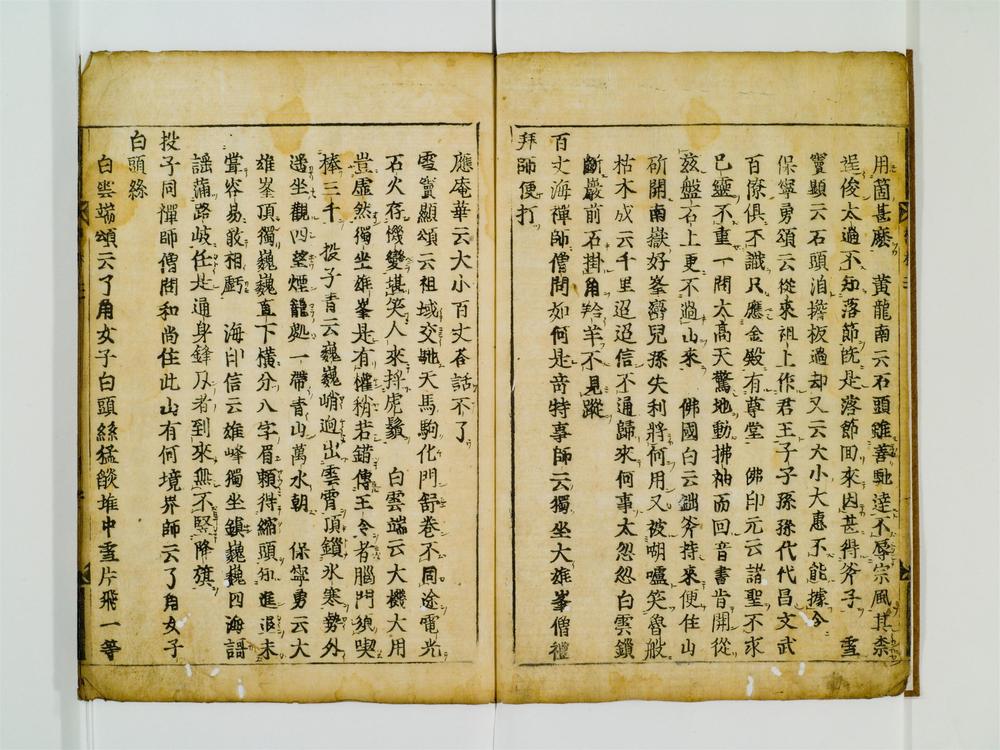 用箇甚麼　黃龍南云石頭雖善馳達不辱宗風其柰
逞俊太過不知落節旣是落節回來因甚得斧子　雪
竇顯云石頭洎擔板過却又云大小大惠不能據令
保寧勇頌云從來祖上作君王子子孫孫代代昌文武
百僚俱不識只應金殿有尊堂　佛印元云諸聖不求
已靈不重一問太高天驚地動拂袖而回音書肯開從
茲盤石上更不過山來　佛國白云鈯斧持來便住山
斫開南嶽好峯巒兒孫失利將何用又被呵嚧笑魯般
枯木成云千里迢迢信不通歸來何事太怱怱白雲鎖
斷巖前石掛角羚羊不見蹤
百丈海禪師僧問如何是奇特事師云獨坐大雄峯僧禮
拜師便打
應庵華云大小百丈荅話不了
雪竇顯頌云祖域交馳天馬駒化門舒卷不同途電光
石火存機變堪笑人來捋虎鬚　白雲端云大機大用
豈虛然獨坐雄峯是有權稍若錯傳王令者腦門須喫
棒三千　投子青云巍巍峭迥出雲霄頂鎖氷寒勢外
遙坐觀四望煙籠處一帶青山萬水朝　保寧勇云大
雄峯頂獨巍巍直下橫分八字眉賴得縮頭知進退未
甞容易敢相虧　海印信云雄峰獨坐鎮巍巍四海謌
謠蕩路岐任是通身鋒刃者到來無不竪降旗
投子同禪師僧問和尚住此山有何境界師云了角女子
白頭絲
白雲端頌云了角女子白頭絲猛燄堆中雪片飛一等